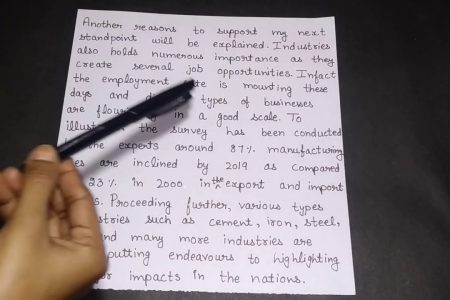 Another reasons to support my next
standpoint will be explained. Industries
also holds numerous importance as they
create several job opportunities. Infact
the employment is mounting these
days and types of businesses
are in a good scale. To
the survey has been conducted
experts around 87% manufacturing
are inclined by 2019 as compared
23% in 2000 in the export and import
Proceeding further, various types
such as cement, iron, steel,
and many more industries are
putting endeavours to highlighting
impacts in the nations.